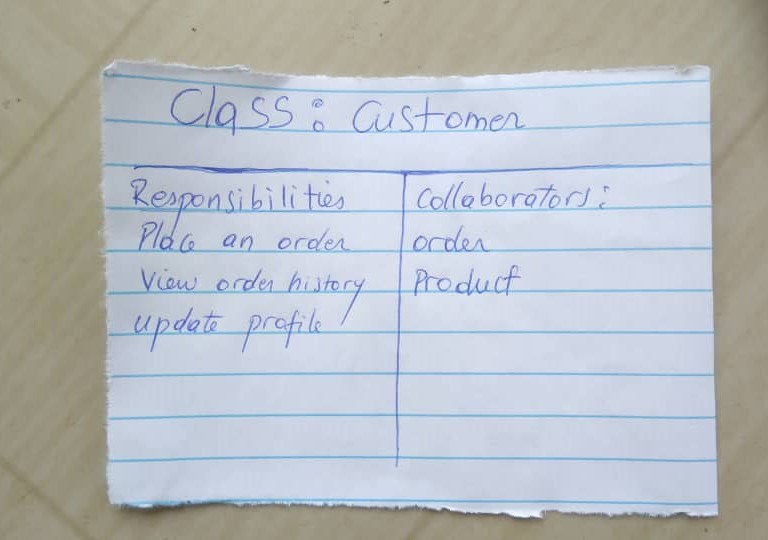 Class: Customer
Responsibilities
Collaborators:
Place an order
order
View order history
Product
update profile